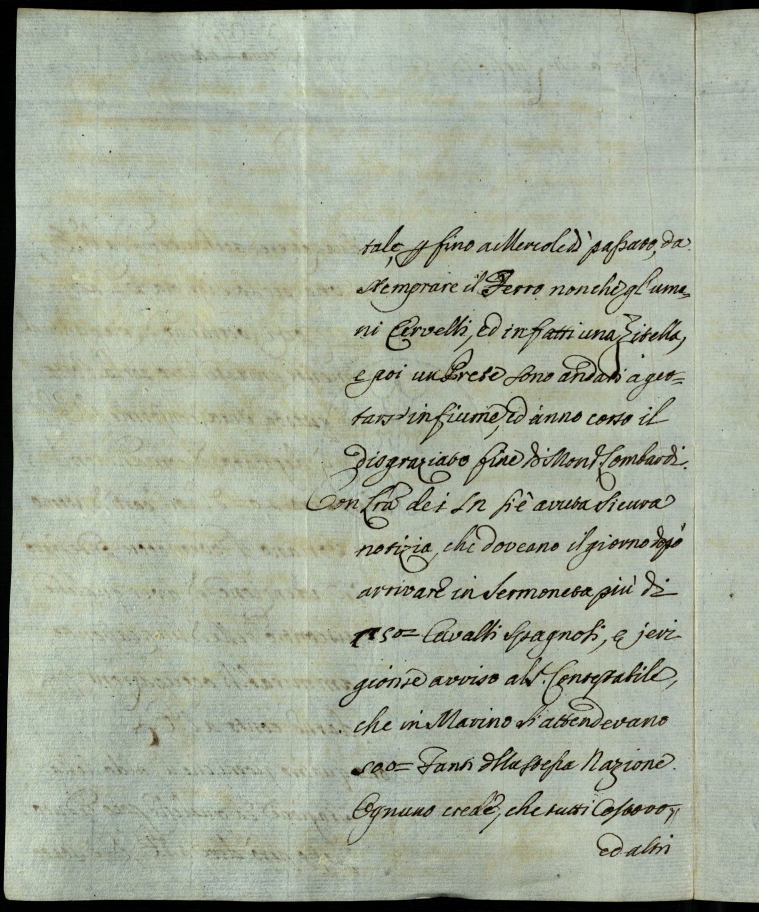 tale, p fino a Mercoledì passato, da
stemprare il Ferro nonche gl'uma=
ni Cervelli, ed in fatti una Zitella,
e poi un Prete sono andati a get=
tarsi in fiume, ed ànno corso il
disgraziato fine di Mons.r Lombardi.
Con Lra de i Ln si è avuta sicura
notizia, che doveano il giorno dopò
arrivare in Sermoneta più di
150= Cavalli Spagnoli, e jeri
gionse avviso al S.r Contestabile,
che in Marino si attendevano
500= Fanti della stessa Nazione.
Ognuno crede, che tutti Costoro,
ed altri